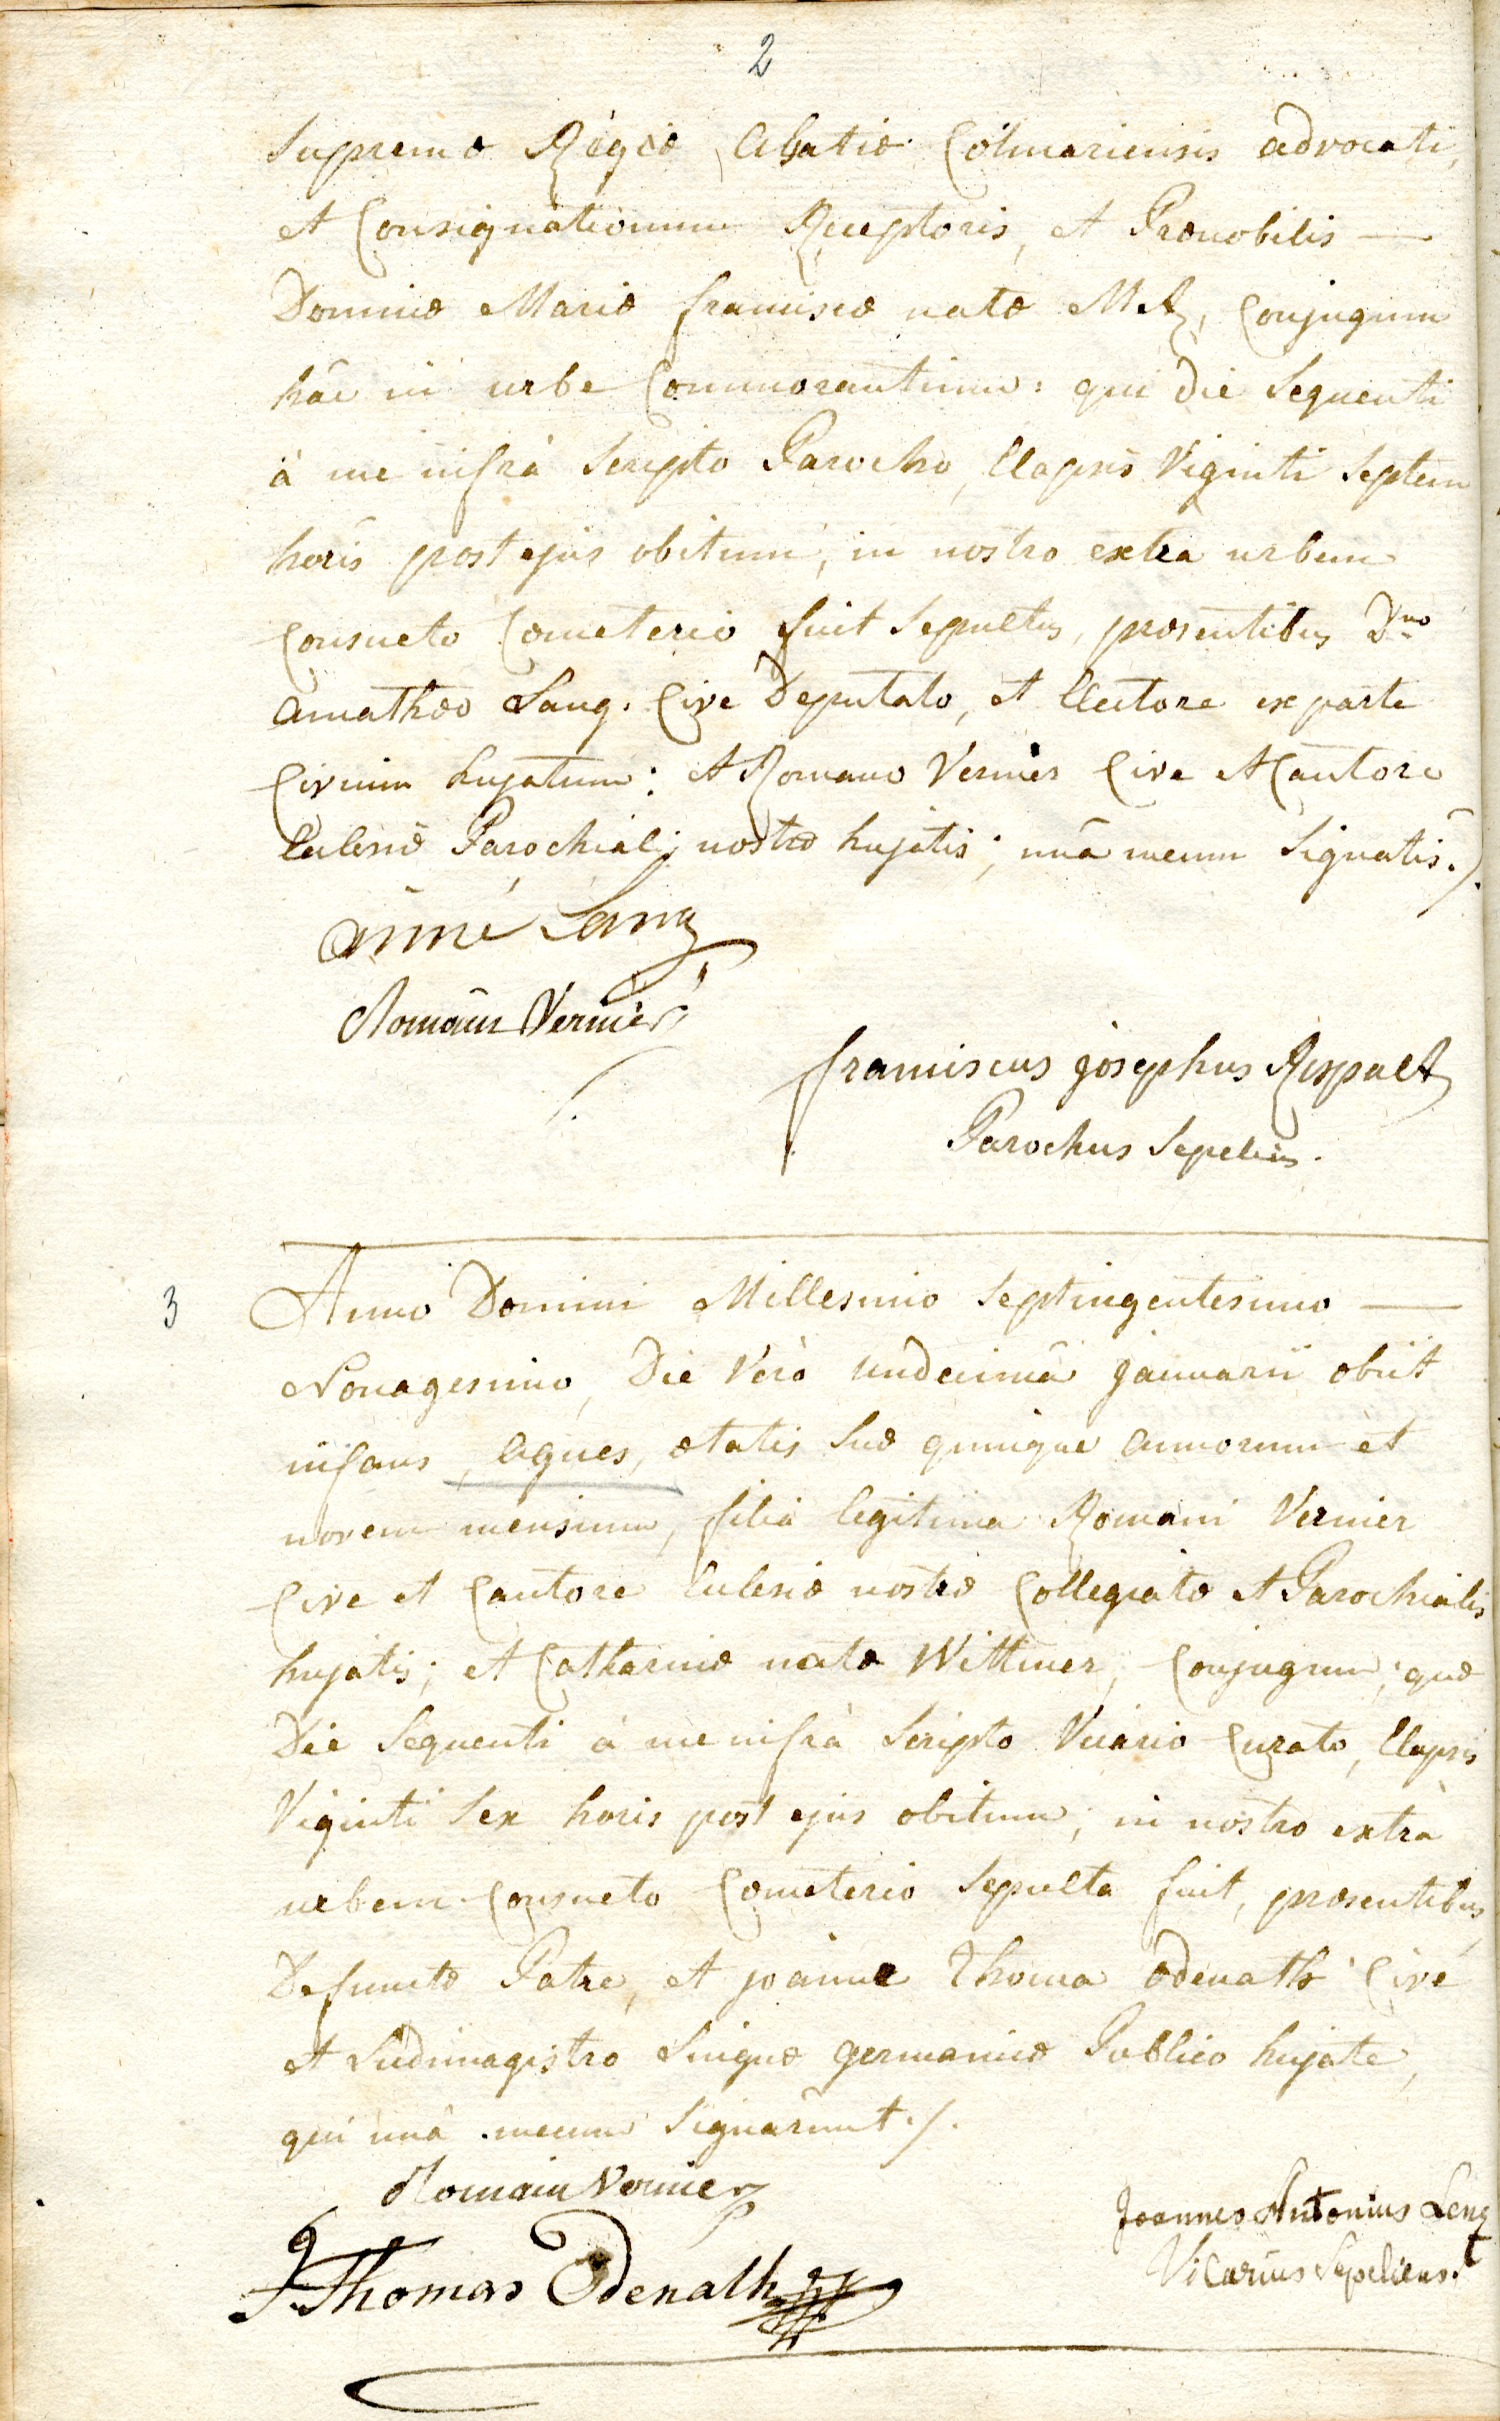 2
Supremæ Regiæ Alsatiæ Colmariensis advocati,
et Consignationum Receptoris, et Prænobilis —
Dominæ Mariæ franciscæ natæ Metz, Conjugum
hâc in urbe Commorantium: qui die Sequenti
à me infrà Scripto Parocho, Elapsis Viginti Septem
horis post ejus obitum, in nostro extra urbem
Consueto Cœmeterio fuit Sepultus, præsentibus Dno
Amathæo Lang. Cive Deputato, et Electore ex parte
Civium hujatum: et Romano Vernier Cive et Cantore
Ecclesiæ Parochialis nostræ hujatis; unâ mecum Signatis./.
Aimé Lang
Romain Vernier
franciscus josephus Respalt
Parochus Sepeliens.
3 Anno Domini Millesimo Septingentesimo —
Nonagesimo, Die Verò undecimâ januarii obiit
infans, Agnes, ætatis Suæ quinque annorum et
novem mensium, filia legitima Romani Vernier
Cive et Cantore Ecclesiæ nostræ Collegiatæ et Parochialis
hujatis; et Catharinæ natæ Wittmer, Conjugum; quæ
Die Sequenti à me infrà Scripto Vicario Curato, Elapsis
Viginti Sex horis post ejus obitum, in nostro extrà
urbem Consueto Cœmeterio Sepulta fuit, præsentibus
Defunctæ Patre, et joanne Thoma Odenath Cive
et Ludimagistro Linguæ germanicæ Publico hujate,
qui unâ mecum Signarunt./.
Romain Vernier
J Thomas Odenath
Joannes Antonius Lenz
Vicarius Sepeliens.